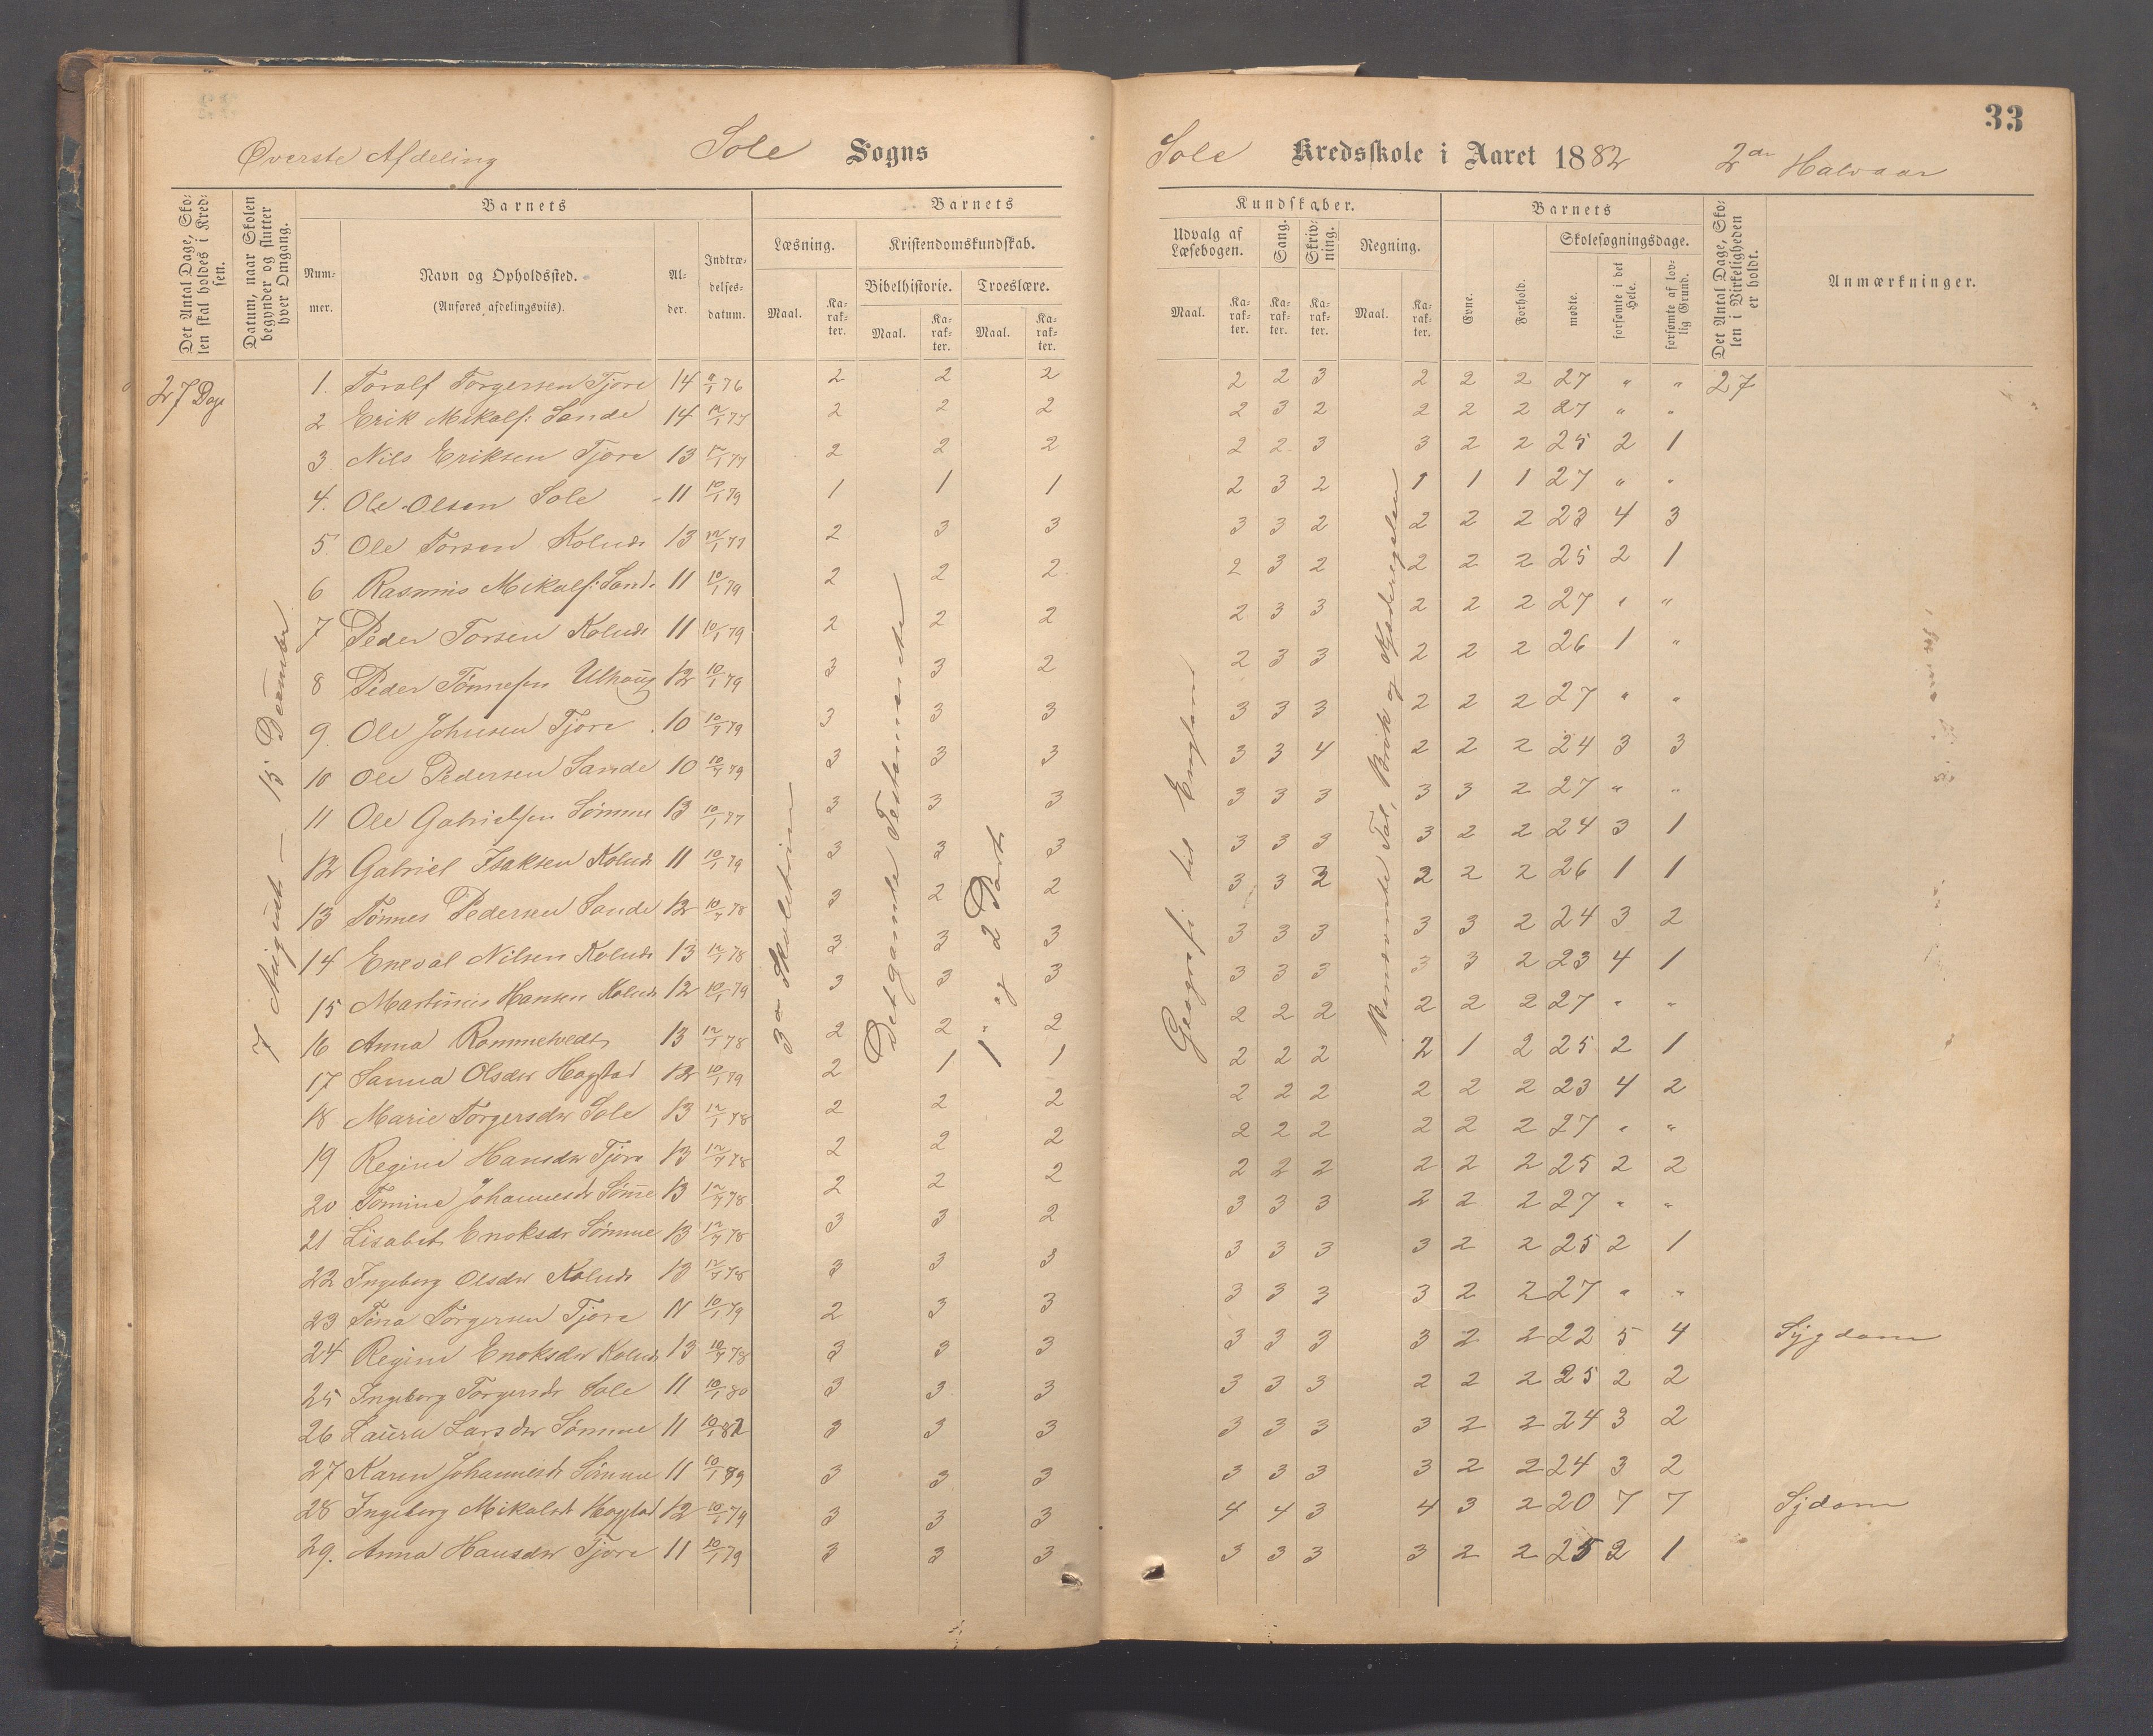 33
Øverste Afdeling Sole Sogns
Sole Kredsskole i Aaret 1882 2det Halvaar
Det Antal Dage, Skolen skal holdes i Kredsen.
Datum, naar Skolen begynder og slutter hver Omgang.
Barnets
Nummer.
Navn og Opholdssted.
(Anføres afdelingsviis).
Alder.
Indtrædelsesdatum.
Barnets
Læsning.
Maal.
Karakter.
Kristendomskundskab.
Bibelhistorie.
Maal.
Karakter.
Troeslære.
Maal.
Karakter.
Kundskaber.
Udvalg af Læsebogen.
Maal.
Karakter.
Sang.
Karakter.
Skrivning.
Karakter.
Regning.
Maal.
Karakter.
Barnets
Evne.
Forhold.
Skolesøgningsdage.
mødte.
forsømte i det Hele.
forsømte af lovlig Grund.
Det Antal Dage, Skolen i Virkeligheden er holdt.
Anmærkninger.
27 Dage
7 August – 15 December
Det gamle Testamente
1 og 2 Part
Geografi til England
1. Toralf Torgersen Tjora 14 2 2 2 2 2 3 2 2 2 27 " " 27
2 Erik Mikals: Sande 14 2 2 2 2 3 2 2 2 2 27 " "
3 Nils Eriksen Tjora 13 2 2 2 2 2 3 3 2 2 25 2 1
4. Ole Olsen Sole 11 10/1 79 1 1 1 2 3 2 1 1 1 27 " "
5. Ole Torsen 13 2 3 3 3 3 2 2 2 2 23 4 3
6 Rasmus Mikals: Sande 11 10/1 79 2 2 2 2 3 2 2 2 2 25 2 1
7 Peder Torsen 11 10/1 79 2 2 2 2 3 3 2 2 2 27 " "
8 Peder Tønnesen 12 10/1 79 3 3 2 2 3 3 2 2 2 26 1 "
9. Ole Johnsen Tjora 10 3 3 3 3 3 3 2 2 2 27 " "
10 Ole Pedersen Sande 10 3 3 3 3 3 4 2 2 2 24 3 3
11 Ole Gabrielsen Sømme 13 3 3 3 3 3 3 3 3 2 27 " "
12 Gabriel Isaksen 11 10/1 79 3 3 3 3 3 3 3 2 2 24 3 1
13 Tønnes Pedersen Sande 12 3 2 2 3 3 2 2 2 2 26 1 1
14 Eneval Nilsen 13 3 3 3 3 3 3 3 3 2 24 3 2
15 Martinius Hansen 12 10/1 79 3 3 3 3 3 3 3 3 2 23 4 1
16 Anna Rommetvedt 13 2 2 2 2 2 2 2 2 2 27 " "
17 Sanna Olsdtr Hagstad 12 10/1 79 2 1 1 2 2 2 2 1 2 25 2 1
18 Marie Torgersdtr Sole 13 2 2 2 2 2 2 2 2 2 23 4 2
19 Regine Hansdtr Tjora 13 2 2 2 2 2 2 2 2 2 27 " "
20 Tomine Johannesdtr Sømme 13 2 2 2 2 2 2 2 2 2 25 2 2
21 Lisabet Enoksdtr Sømme 13 3 3 2 3 3 3 2 2 2 27 " "
22 Ingeborg Olsdtr 13 3 3 3 3 3 3 3 2 2 25 2 1
23 Torgersen Tjora 11 10/1 79 2 3 3 3 3 3 3 2 2 27 " "
24 Regine Enoksdtr 13 3 3 3 3 3 3 3 2 2 22 5 4 Sygdom
25 Ingeborg Torgersdtr Sole 11 10/1 80 3 3 3 3 3 3 2 2 2 25 2 2
26 Laura Larsdtr Sømme 11 3 3 3 3 3 3 3 2 2 24 3 2
27 Karen Johannesdtr Sømme 11 3 3 3 3 3 3 3 2 2 24 3 2
28 Ingeborg Mikalsdtr Hagstad 12 10/1 79 3 3 3 4 4 3 4 3 2 20 7 7 Sjdom
29. Anna Hansdtr Tjora 11 10/1 79 3 3 3 3 3 3 3 2 2 25 2 1